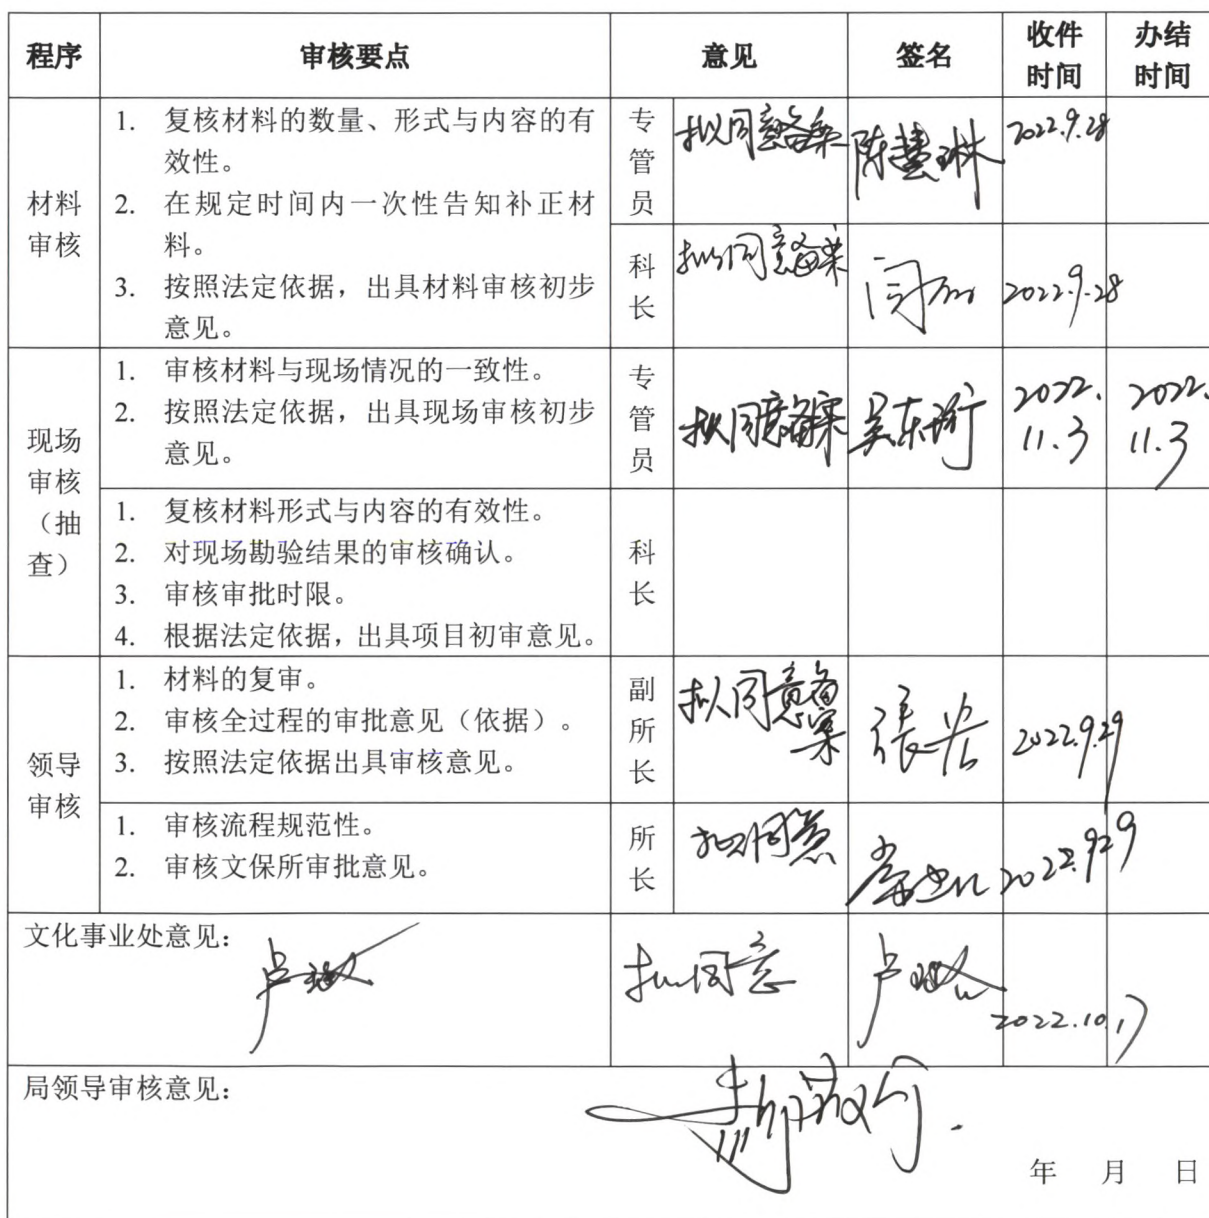 程序 审核要点 意见 签名 收件时间 办结时间
材料审核
1. 复核材料的数量、形式与内容的有
效性。
2. 在规定时间内一次性告知补正材
料。
3. 按照法定依据，出具材料审核初步
意见。
专管员 拟同意备案 陈慧琳 2022.9.28
科长 拟同意备案 2022.9.28
现场审核（抽查）
1. 审核材料与现场情况的一致性。
2. 按照法定依据，出具现场审核初步
意见。
专管员 拟同意备案 2022.11.3 2022.11.3
1. 复核材料形式与内容的有效性。
2. 对现场勘验结果的审核确认。
3. 审核审批时限。
4. 根据法定依据，出具项目初审意见。
科长
领导审核
1. 材料的复审。
2. 审核全过程的审批意见（依据）。
3. 按照法定依据出具审核意见。
副所长 拟同意备案 2022.9.29
1. 审核流程规范性。
2. 审核文保所审批意见。
所长 拟同意 2022.9.29
文化事业处意见：
拟同意 2022.10.17
局领导审核意见：
年 月 日